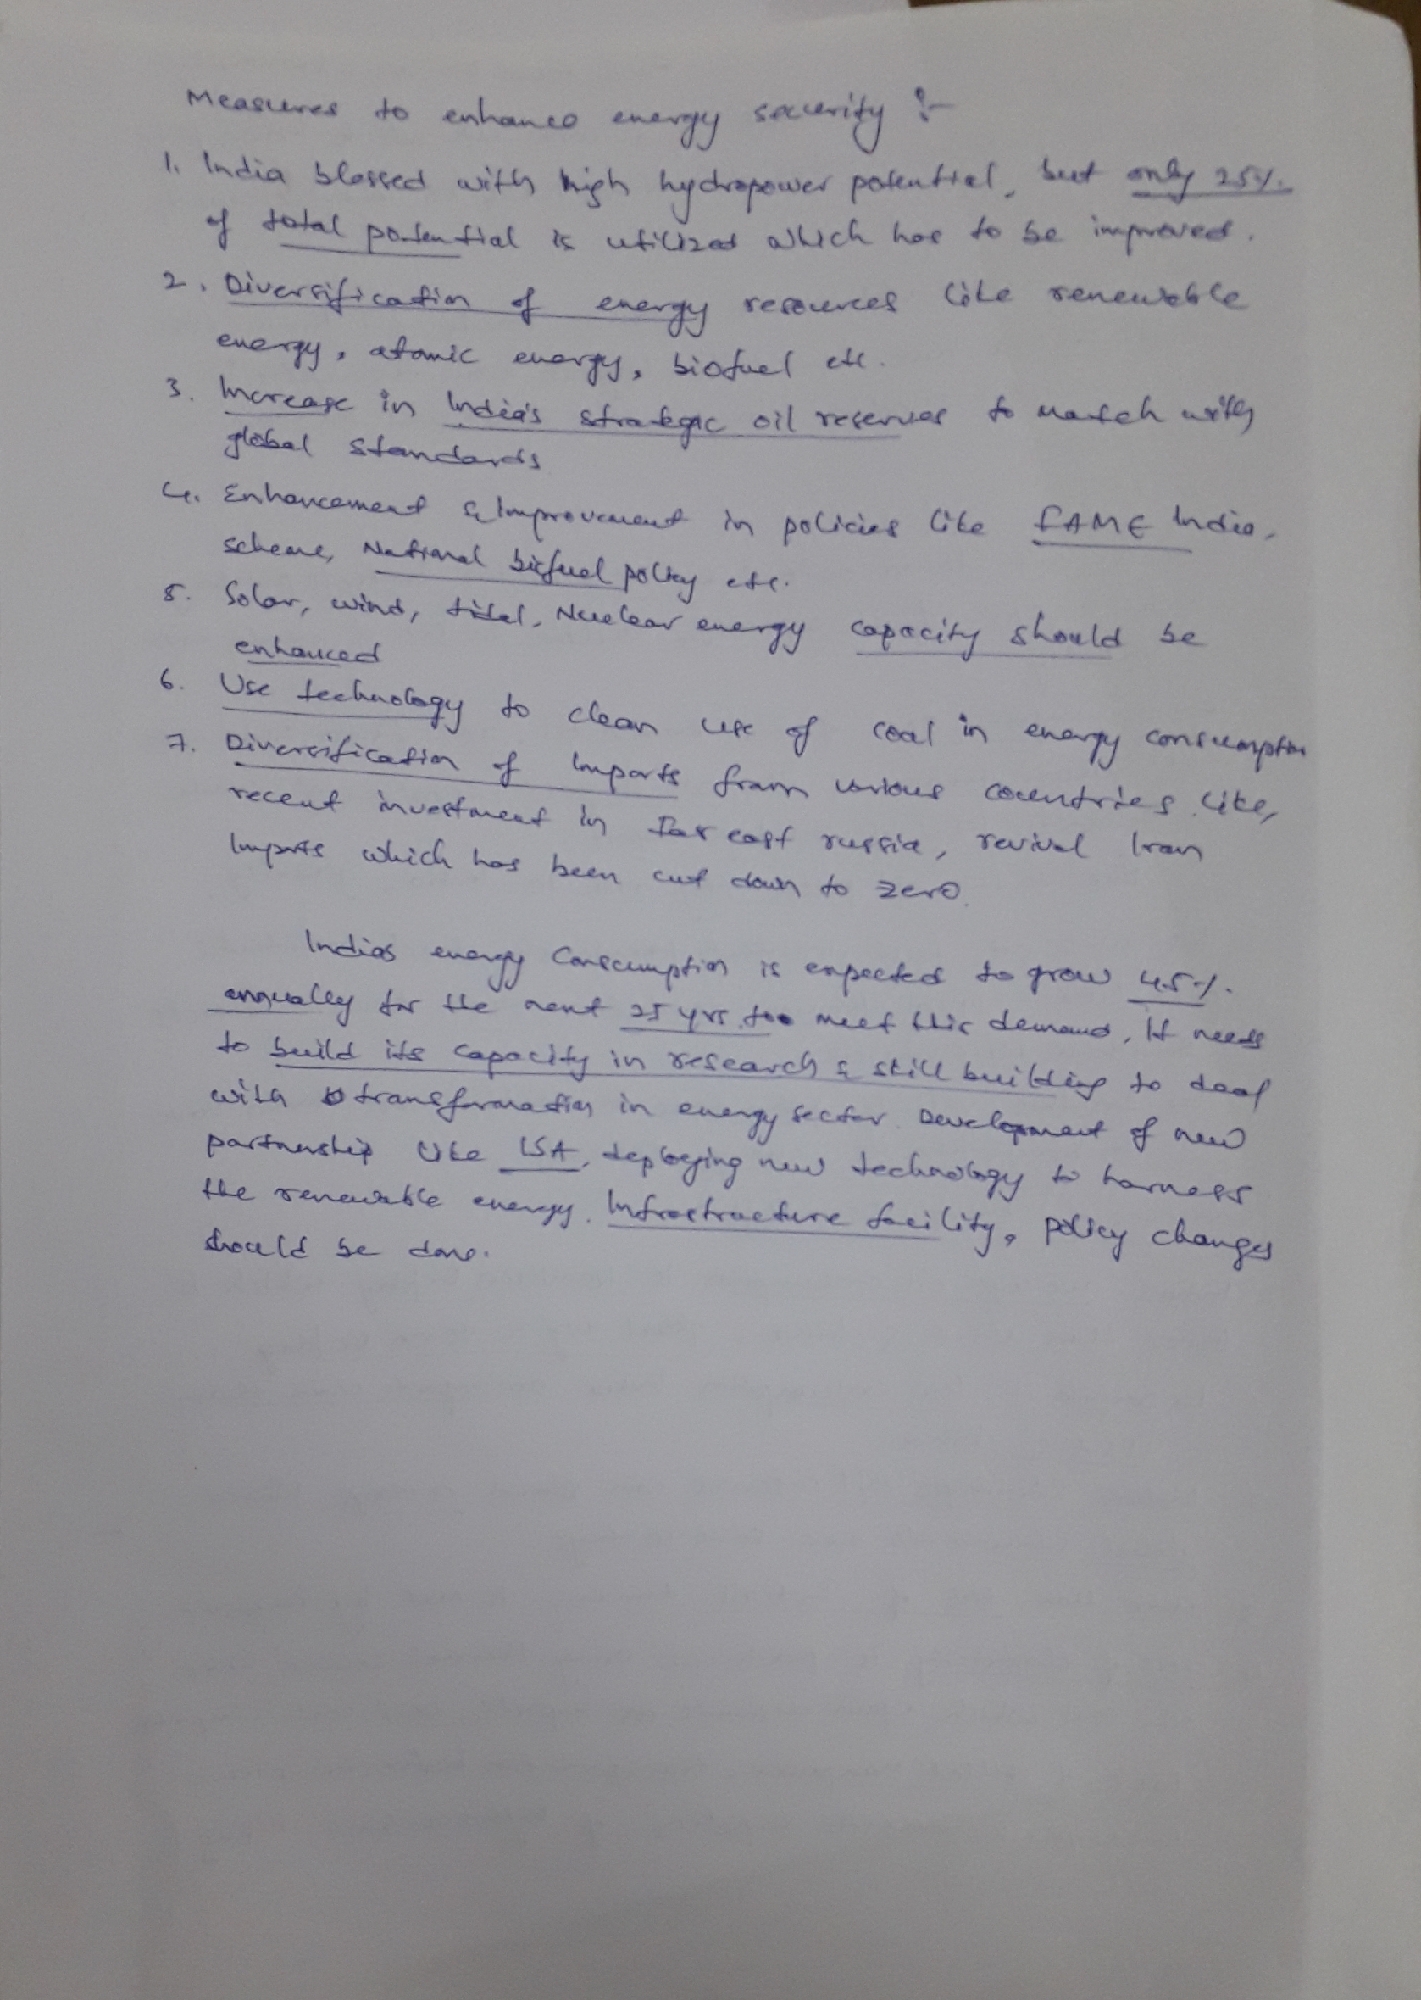 Measures to enhance energy security :-
1. India blessed with high hydropower potential, but only 25%
of total potential is utilized which has to be improved.
2. Diversification of energy resources like renewable
energy, atomic energy, biofuel etc.
3. Increase in India's strategic oil reserves to match with
global standards
4. Enhancement & Improvement in policies like FAME India,
scheme, National biofuel policy etc.
5. Solar, wind, tidal, Nuclear energy capacity should be
enhanced
6. Use technology to clean use of coal in energy consumption
7. Diversification of Imports from various countries like,
recent investment in Far east russia, revival Iran
Imports which has been cut down to zero.
Indias energy Consumption is expected to grow 4.5%.
annually for the next 25 yrs. too meet this demand, It needs
to build its capacity in research & skill building to deal
with transformation in energy sector. Development of new
partnership like ISA, deploying new technology to harness
the renewable energy. Infrastructure facility, policy changes
should be done.